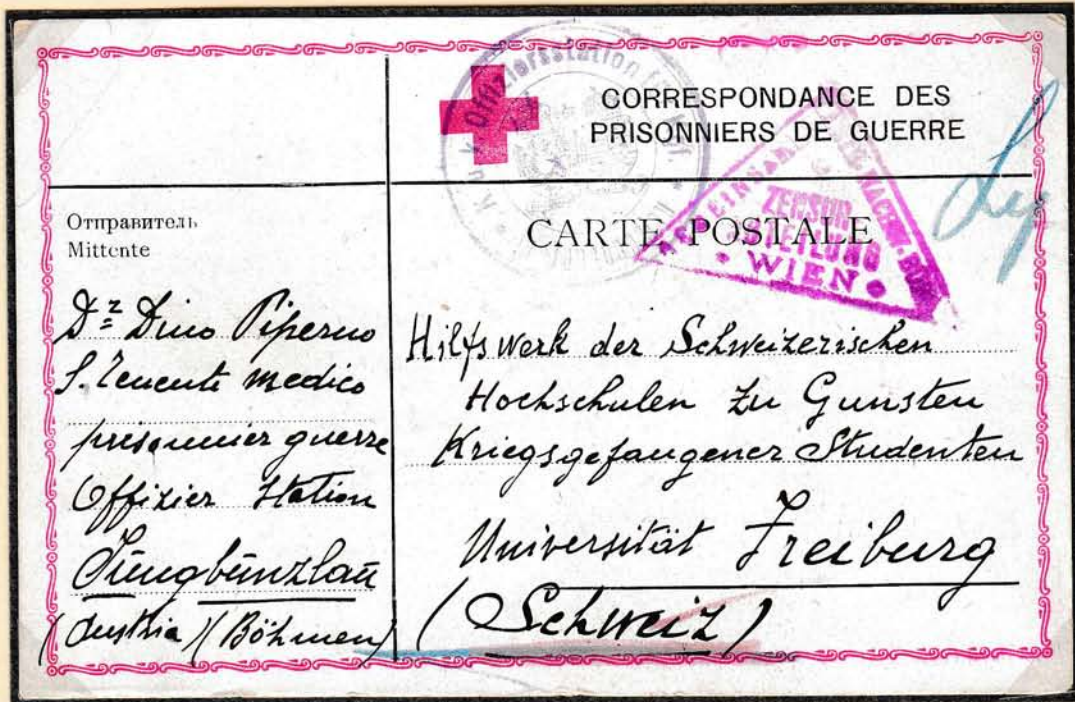 CORRESPONDANCE DES
PRISONNIERS DE GUERRE
CARTE POSTALE
ZENSUR
WIEN
Отправитель
Mittente
Dr Dino Piperno
S. Tenente medico
prisonnier guerre
Offizier Station
Jungbunzlau
(Austria) (Böhmen)
Hilfswerk der Schweizerischen
Hochschulen zu Gunsten
Kriegsgefangener Studenten
Universität Freiburg
(Schweiz)